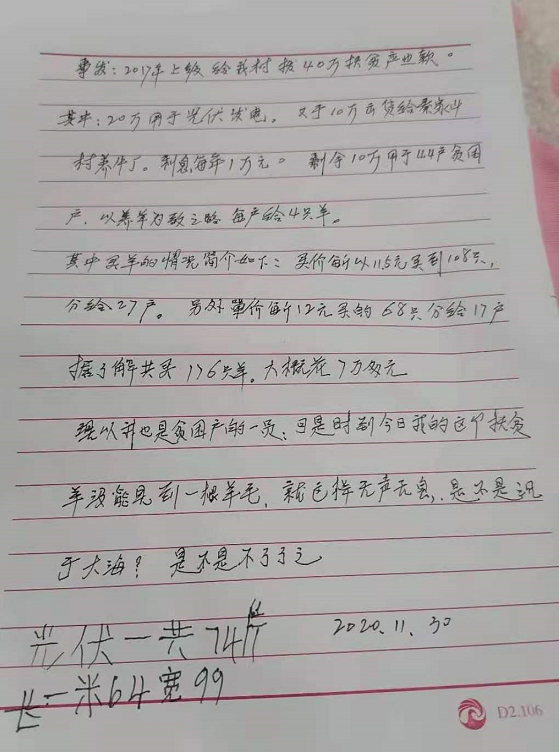 事发:2017年上级给我村拨40万扶贫产业款。
其中:20万用于光伏发电。又于10万后贷给秦家斗
村养牛了。利息每年1万元。剩余10万用于44户贫困
户,以养羊为致之路每户给4只羊。
其中买羊的情况简介如下:买价每斤以11.5元买到108只,
分给27户。另外单价每斤12元买的68只分给17户
据了解共买176只羊。大概花7万多元
现以我也是贫困户的一员,可是时到今日我的这个扶贫
羊没能见到一根羊毛,就这样无声无息,是不是沉
于大海?是不是不了了之
2020.11.30
光伏一共74片
长一米64宽99
D2.106